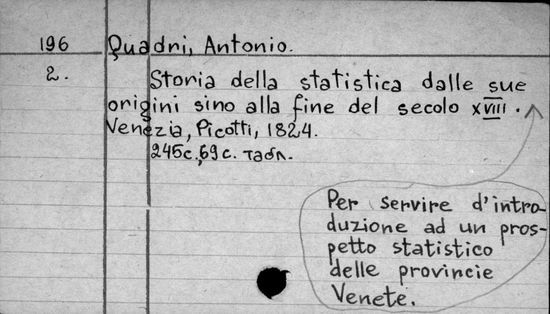 196 Quadri, Antonio.
2. Storia della statistica dalle sue
origini sino alla fine del secolo XVIII.
Venezia, Picotti, 1824.
245c., 69c. табл.
Per servire d'intro-
duzione ad un pros-
petto statistico
delle provincie
Venete.